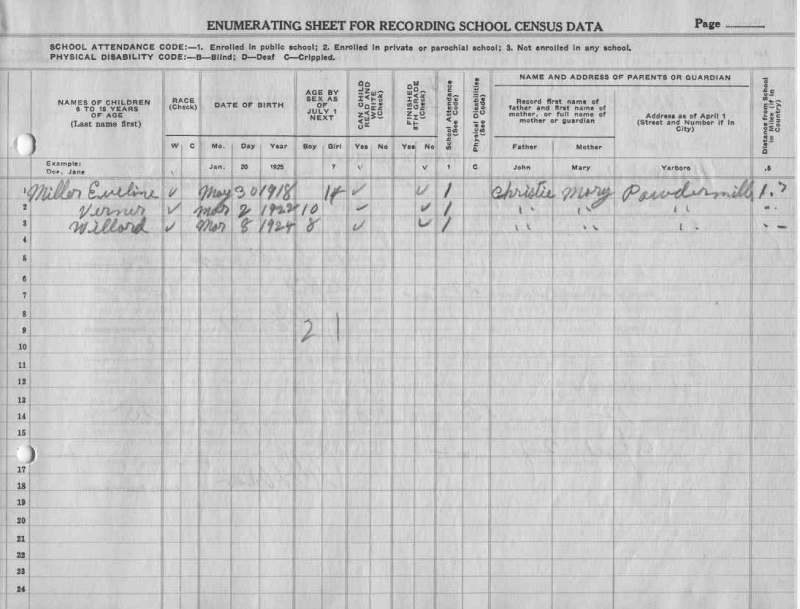 ENUMERATING SHEET FOR RECORDING SCHOOL CENSUS DATA Page
SCHOOL ATTENDANCE CODE:—1. Enrolled in public school; 2. Enrolled in private or parochial school; 3. Not enrolled in any school.
PHYSICAL DISABILITY CODE:—B—Blind; D—Deaf C—Crippled.
NAMES OF CHILDREN 6 TO 18 YEARS OF AGE (Last name first)
RACE (Check)
W C
DATE OF BIRTH
Mo. Day Year
AGE BY SEX AS OF JULY 1 NEXT
Boy Girl
CAN CHILD READ AND WRITE (Check)
Yes No
FINISHED 8TH GRADE (Check)
Yes No
School Attendance (See Code)
Physical Disabilities (See Code)
NAME AND ADDRESS OF PARENTS OR GUARDIAN
Record first name of father and first name of mother, or full name of mother or guardian
Father Mother
Address as of April 1 (Street and Number if in City)
Distance from School in Miles (if in Country)
Example: Doe, Jane √ Jan. 20 1925 7 √ √ 1 C John Mary Yarboro .5
1 Miller Eveline ✓ May 30 1918 14 ✓ ✓ 1 Christie Mary Powdermill
2 Verner ✓ Mar 2 1922 10 ✓ ✓ 1 " " "
3 Willard ✓ Mar 8 1924 8 ✓ ✓ 1 " " "
4
5
6
7
8
9 2 1
10
11
12
13
14
15
17
18
19
20
21
22
23
24